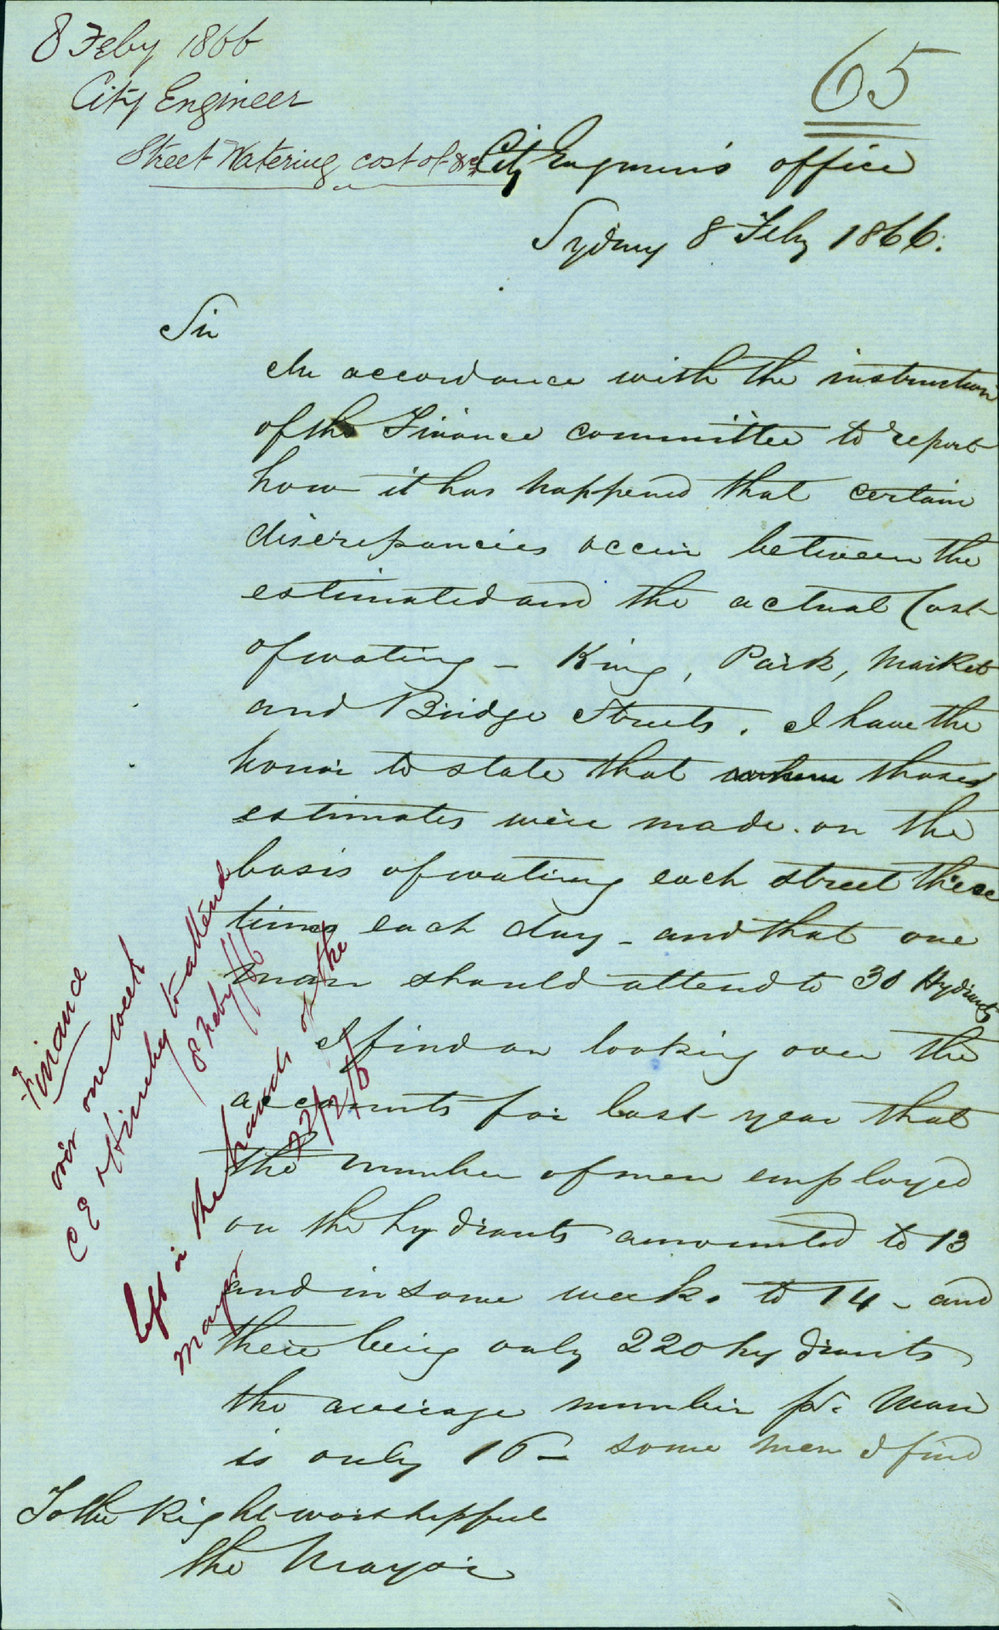 8 Feby 1866
City Engineer
Street Watering cost of &c
65
City Engineer's office
Sydney 8 Feby 1866.
Sir
In accordance with the instruction
of the Finance committee to report
how it has happened that certain
discrepancies occur between the
estimated and the actual Cost
of wating - King, Park, Market
and Bridge Streets. I have the
honor to state that those
estimates were made on the
basis of wating each street three
times each day - and that one
man should attend to 30 Hydrants
I find on looking over the
accounts for last year that
the number of men employed
on the hydrants amounted to 13
and in some weeks to 14 - and
there being only 220 hydrants
the average number pr. Man
is only 16 - some men I find
To the Right worshipful
the Mayor
Finance
over one week
C E & Hinchy to attend
8 Feby/66
left in the hands of the
Mayor
22/2/6